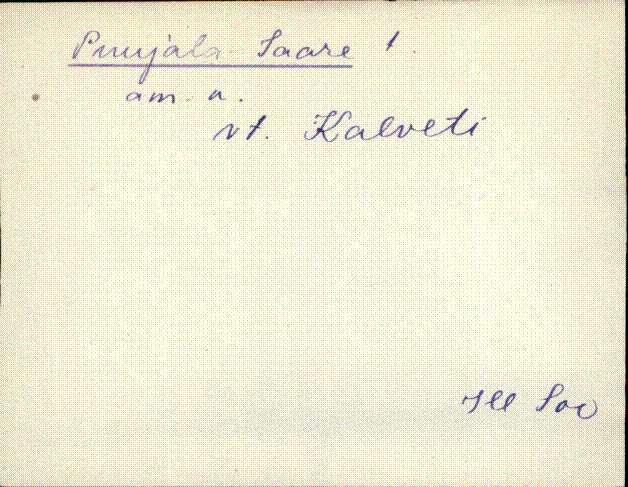 Puujala-Saare t.
am. n.
vt. Kalveti
Ill Soo